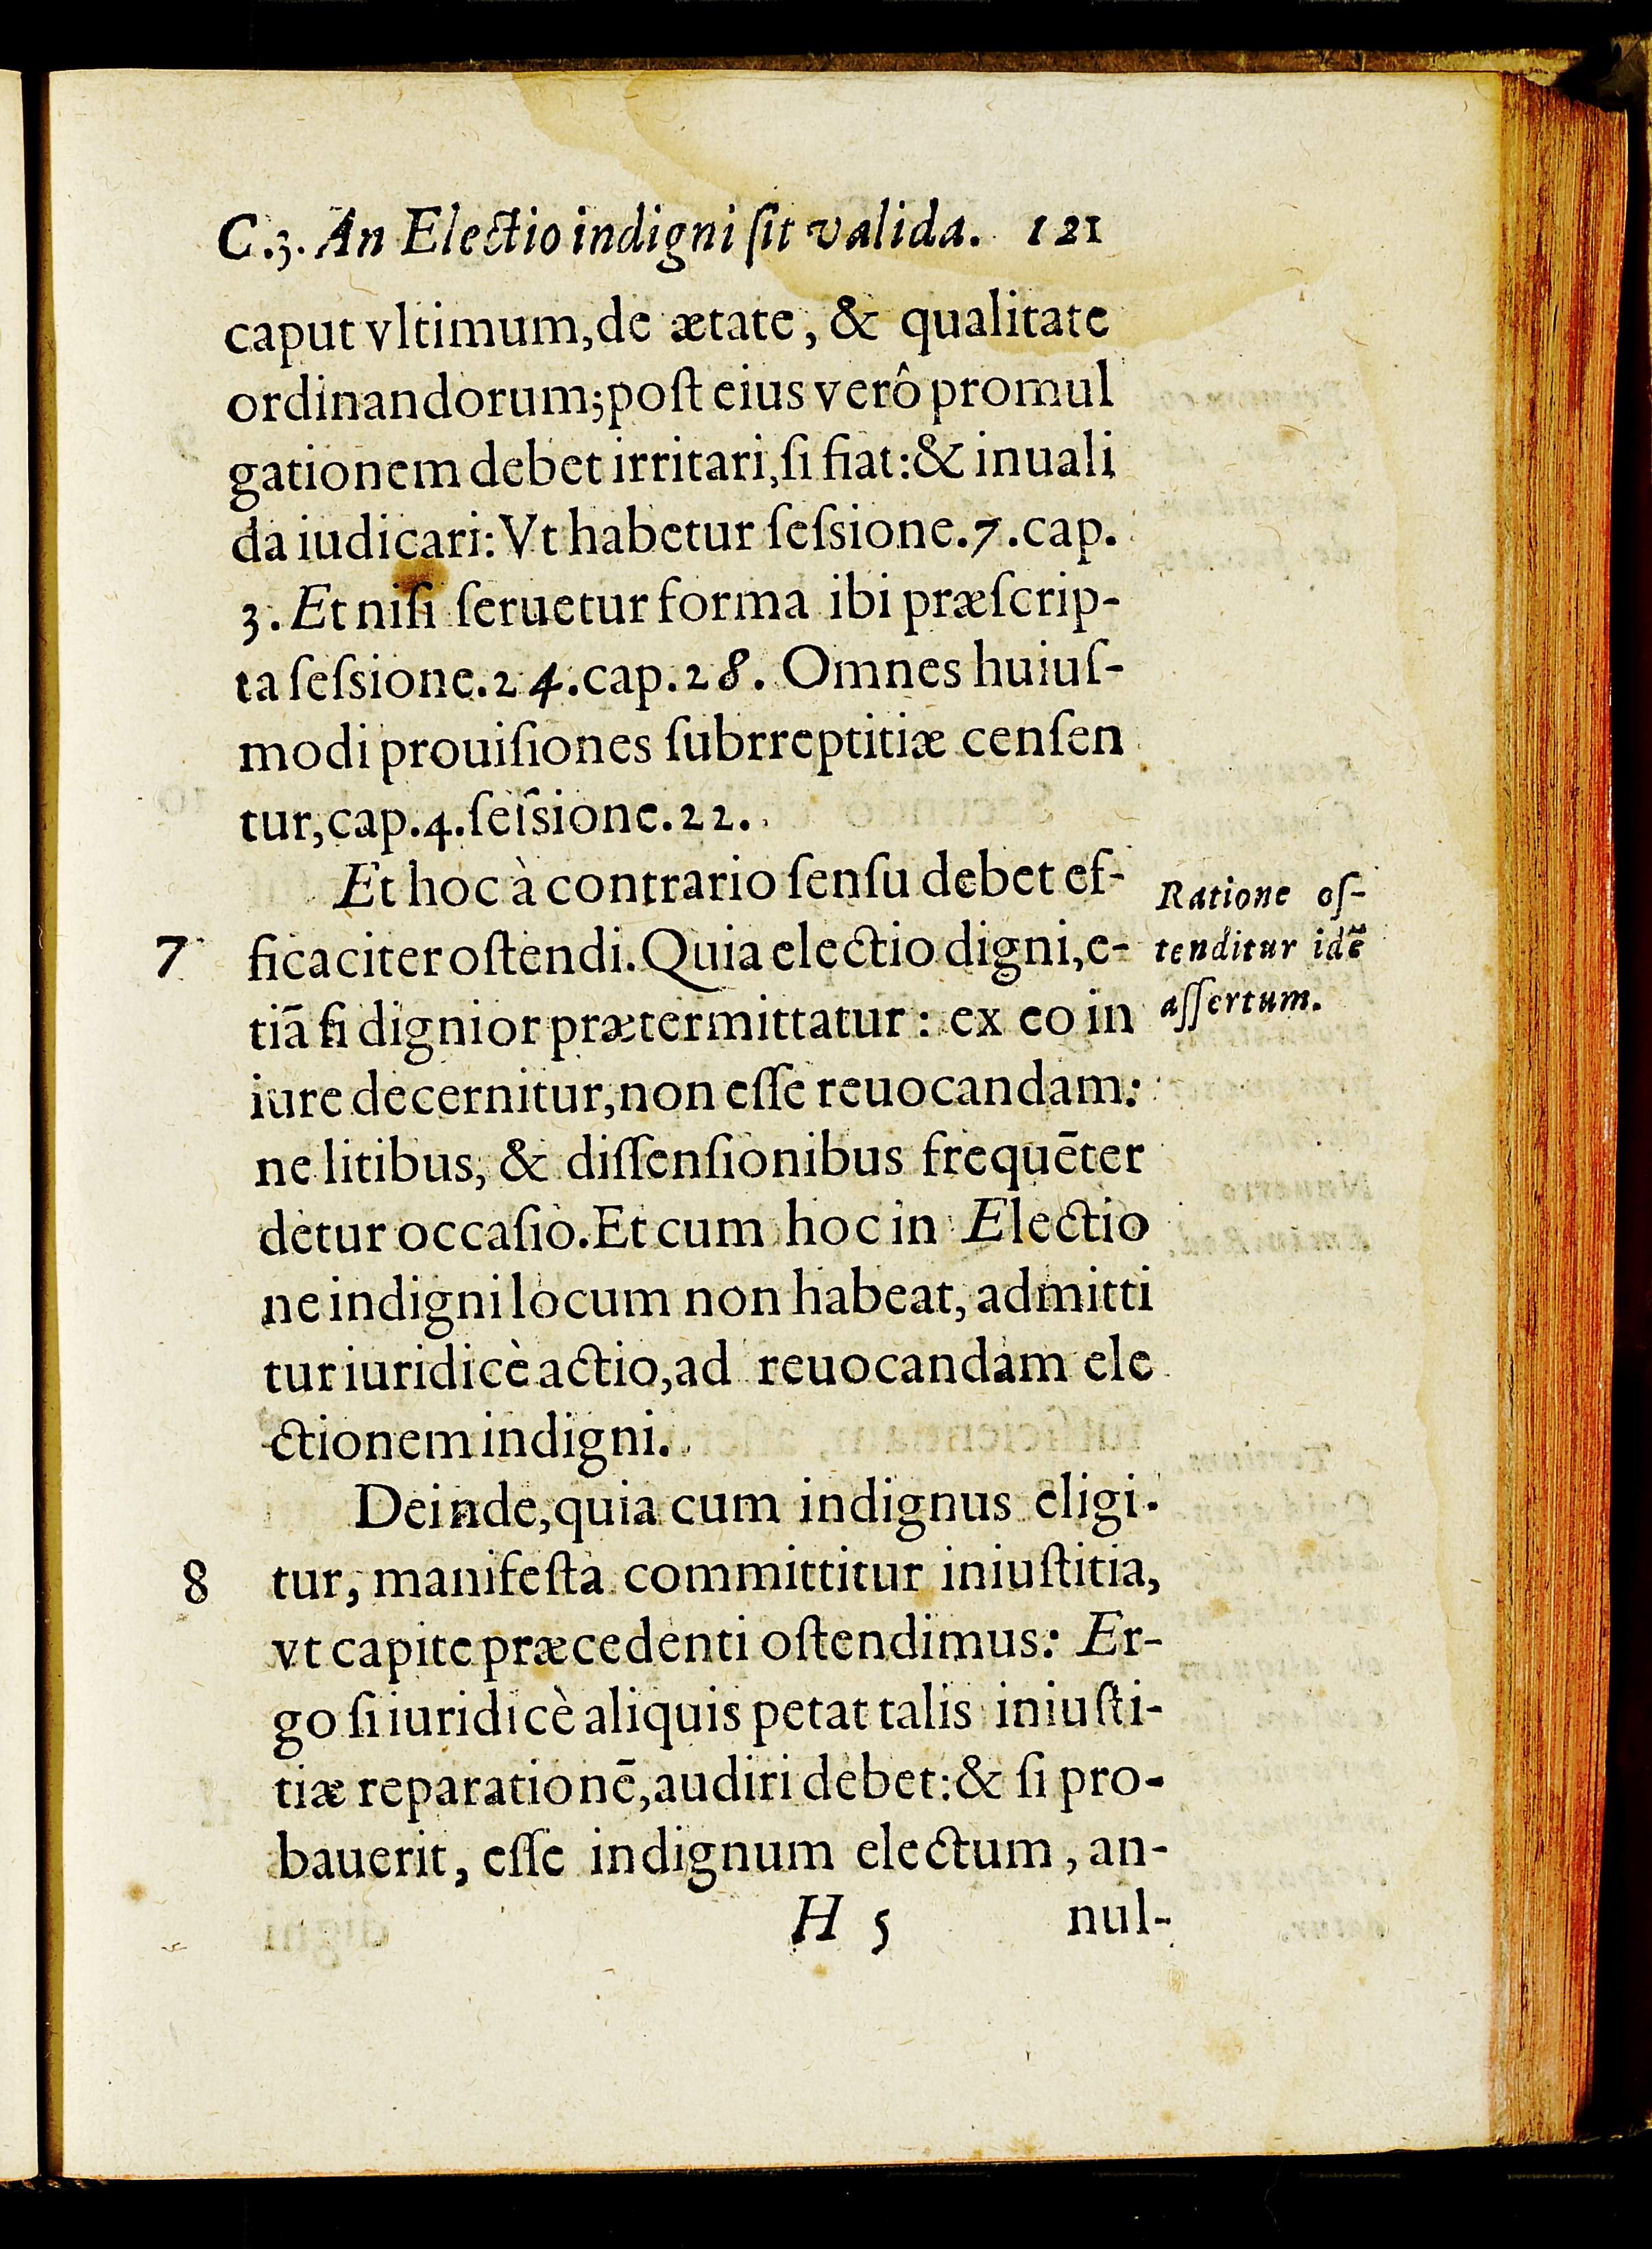 C.3. An Electio indigni ſit valida. 121
caput vltimum, de ætate, & qualitate
ordinandorum; poſt eius verô promul
gationem debet irritari, ſi fiat: & inuali
da iudicari: Vt habetur ſeſsione. 7. cap.
3. Et niſi ſeruetur forma ibi præſcrip-
ta ſeſsione. 24. cap. 28. Omnes huiuſ-
modi prouiſiones ſubrreptitiæ cenſen
tur, cap. 4. ſeſsione. 22.
Et hoc à contrario ſenſu debet ef-
7 ficaciter oſtendi. Quia electio digni, e-
tiā ſi dignior prætermittatur: ex eo in
iure decernitur, non eſſe reuocandam:
ne litibus, & diſſenſionibus frequēter
detur occaſio. Et cum hoc in Electio
ne indigni locum non habeat, admitti
tur iuridicè actio, ad reuocandam ele
ctionem indigni.
Ratione oſ-
tenditur idē
aſſertum.
Deinde, quia cum indignus eligi-
8 tur, manifeſta committitur iniuſtitia,
vt capite præcedenti oſtendimus: Er-
go ſi iuridicè aliquis petat talis iniuſti-
tiæ reparationē, audiri debet: & ſi pro-
bauerit, eſſe indignum electum, an-
H 5 nul-